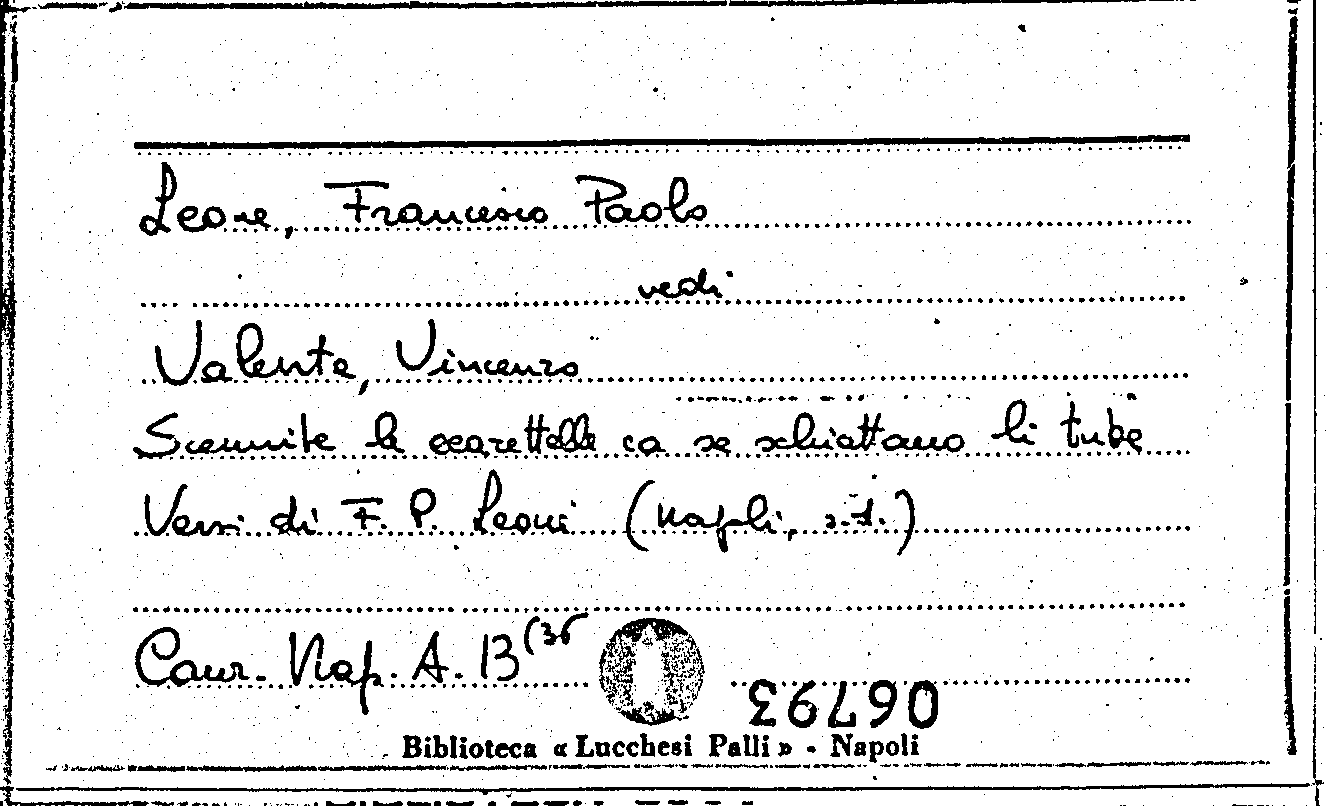 Leone, Francesco Paolo
vedi
Valente, Vincenzo
Scennite le ccarettelle ca se schiattano li tube
Versi di F. P. Leoni (Napoli, s.d.)
Canz. Nap. A. 13 (36
06793
Biblioteca « Lucchesi Palli » - Napoli